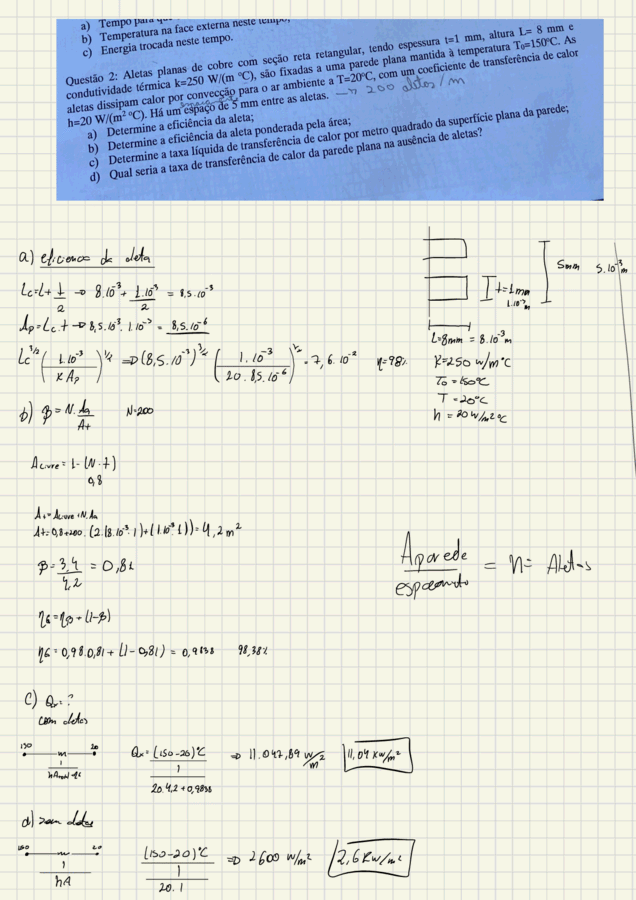 a) Tempo para que
b) Temperatura na face externa neste tempo,
c) Energia trocada neste tempo.
Questão 2: Aletas planas de cobre com seção reta retangular, tendo espessura t=1 mm, altura L= 8 mm e
condutividade térmica k=250 W/(m °C), são fixadas a uma parede plana mantida à temperatura T₀=150°C. As
aletas dissipam calor por convecção para o ar ambiente a T=20°C, com um coeficiente de transferência de calor
h=20 W/(m² °C). Há um espaço de 5 mm entre as aletas. → 200 aletas/m
a) Determine a eficiência da aleta;
b) Determine a eficiência da aleta ponderada pela área;
c) Determine a taxa líquida de transferência de calor por metro quadrado da superfície plana da parede;
d) Qual seria a taxa de transferência de calor da parede plana na ausência de aletas?
a) eficiencia da aleta
Lc=L+t/2 → 8.10⁻³+1.10⁻³/2 = 8,5.10⁻³
Ap=Lc.t → 8,5.10⁻³.1.10⁻³ = 8,5.10⁻⁶
Lc^3/2 (1.10⁻³/K Ap)^1/2 ⇒ (8,5.10⁻³)^3/2 (1.10⁻³/20.8,5.10⁻⁶)^1/2 = 7,6.10⁻² η=98%
t=1mm
1.10⁻³m
5mm 5.10⁻³m
L=8mm = 8.10⁻³m
K=250 W/m°C
T₀=150°C
T=20°C
h=20W/m²°C
b) β=N.Aa/At N=200
Alivre=1-(N.t)
0,8
At=Alivre+N.Aa
At=0,8+200.(2.(8.10⁻³.1)+(1.10⁻³.1))=4,2m²
β=3,4/4,2=0,81
Aparede/espaçamento = n= Aletas
ηG=ηβ+(1-β)
ηG=0,98.0,81+(1-0,81)=0,9838 98,38%
c) Qr=?
com aletas
150 20
1/hAtotal.ηG
Qr=(150-20)°C/1/20.4,2+0,9838 ⇒ 11.047,89 W/m² 11,04 KW/m²
d) sem aletas
150 20
1/hA
(150-20)°C/1/20.1 ⇒ 2600 W/m² 2,6KW/m²